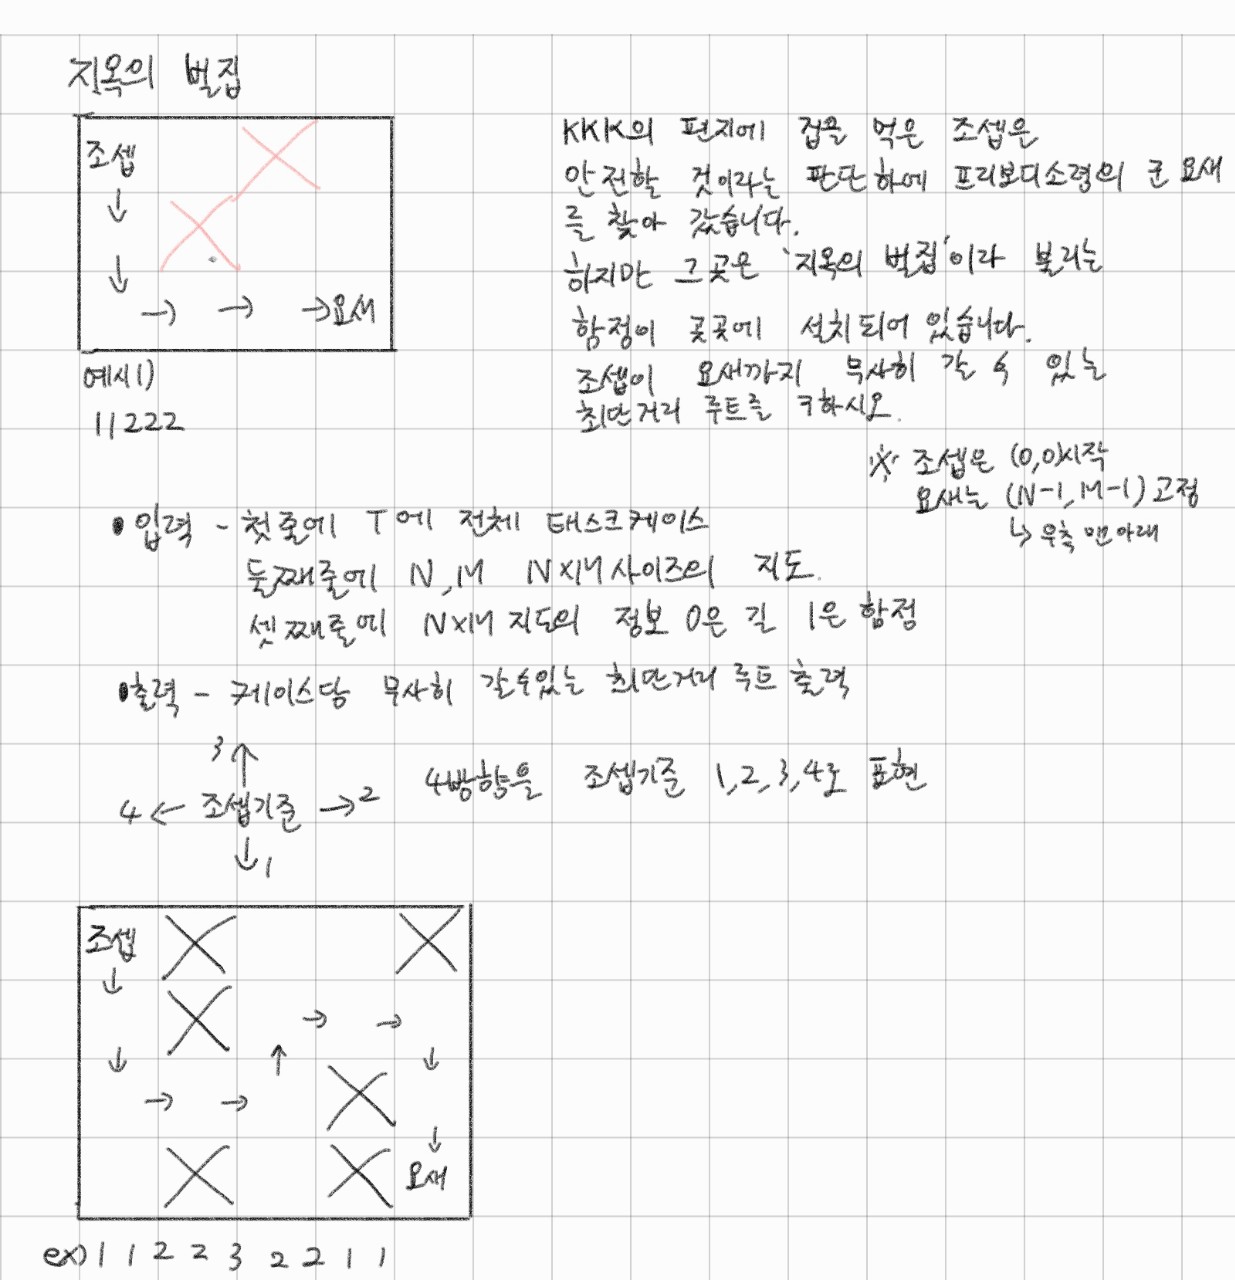 지옥의 벌집
조셉
↓
↓
→ → →요새
예시1)
11222
KKK의 편지에 겁을 먹은 조셉은
안전할 것이라는 판단하에 프리보디소령의 군 요새
를 찾아 갔습니다.
하지만 그곳은 '지옥의 벌집'이라 불리는
함정이 곳곳에 설치되어 있습니다.
조셉이 요새까지 무사히 갈 수 있는
최단거리 루트를 구하시오.
※ 조셉은 (0,0)시작
요새는 (N-1, M-1) 고정
↳ 우측 맨아래
• 입력 - 첫줄에 T에 전체 테스크케이스
둘째줄에 N, M N×M 사이즈의 지도.
셋째줄에 N×M 지도의 정보 0은 길 1은 함정
• 출력 - 케이스당 무사히 갈수있는 최단거리 루트 출력
3 ↑
4 ← 조셉기준 → 2
↓ 1
4방향을 조셉기준 1,2,3,4로 표현
조셉
↓
→ →
↓ ↑ ↓
→ →
↓
요새
ex) 1 1 2 2 3 2 2 1 1